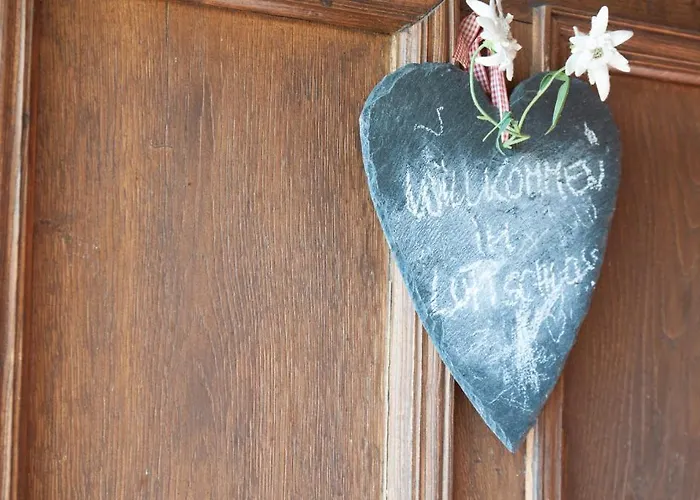 WILLKOMMEN
IM
LUFTSCHLOSS